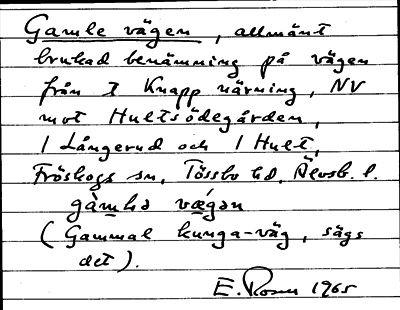 Gamle vägen, allmänt
brukad benämning på vägen
från t Knapp närning, NV
mot Hultsödegården,
1 Långerud och 1 Hult,
Fröskogs sn, Tössbo hd, Älvsb. l.
gàmha vǽgən
(Gammal kunga-väg, sägs
det).
E. Rosen 1965